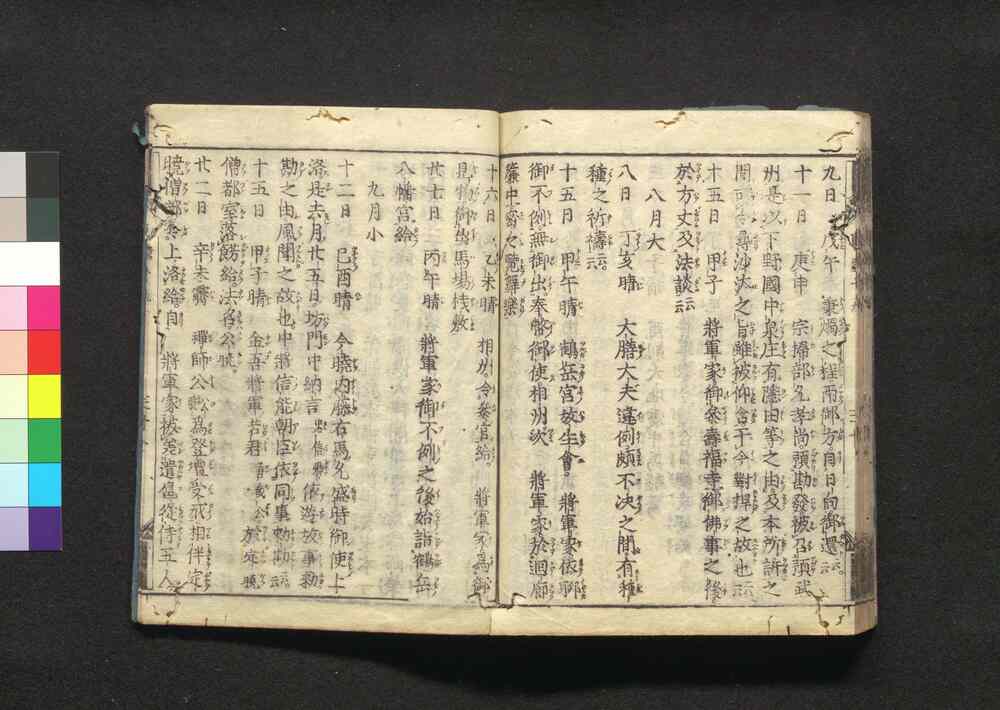 九日 戊午 秉燭之程雨御方自日向御還云云。
十一日 庚申 宗掃部允孝尚頭勘發被召預武
州是以下野國中泉庄有隱田等之由及本所訴之
間可尋沙汰之旨雖被仰含于今對捍之故也云云
十五日 甲子 將軍家御參壽福寺御佛事之後
於方丈及法談云云
八月大
八日 丁亥晴 大膳大夫違例頗不决之間有種
種之祈禱云云
十五日 甲午晴 鶴岳宮放生會 將軍家依聊
御不例無御出奉幣御使相州次 將軍家於廻廊
簾中密々覽舞樂
十六日 乙未晴 相州令參宮給。 將軍家爲御
見物御出馬場棧敷
廿七日 丙午晴 將軍家御不例之後始詣鶴岳
八幡宮給
九月小
十二日 己酉晴 今曉内藤右馬允盛時御使上
洛是去月廿五日坊門中納言忠信卿依遊故事勅
勘之由風聞之故也中將信能朝臣依同事勅勘云云
十五日 甲子晴 金吾將軍若君善哉公於定曉
僧都室落餝給法名公曉。
廿二日 辛未霽 禪師公爲登壇受戒相伴定
曉僧都令上洛給自 將軍家被差遣扈從侍五人